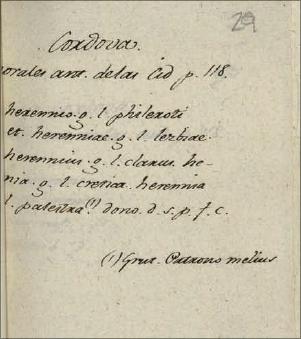 29
Cordova.
orales ant. delas Cid p. 118.
herennio. g. l. philexoti
et. herenniae. g. l. lezbiae
herennius. g. l. clarus. he-
nia. g. l. cretica. herennia
l. palestra (1) dono. d. s. p. f. c.
(1) Grut. Patrono melius